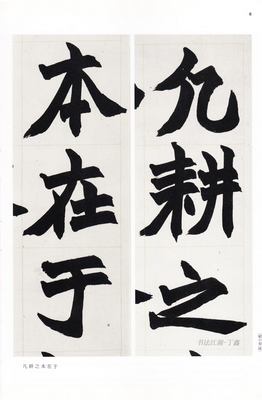 凡耕之
本在于
凡耕之本在于
书法江湖·丁鑫